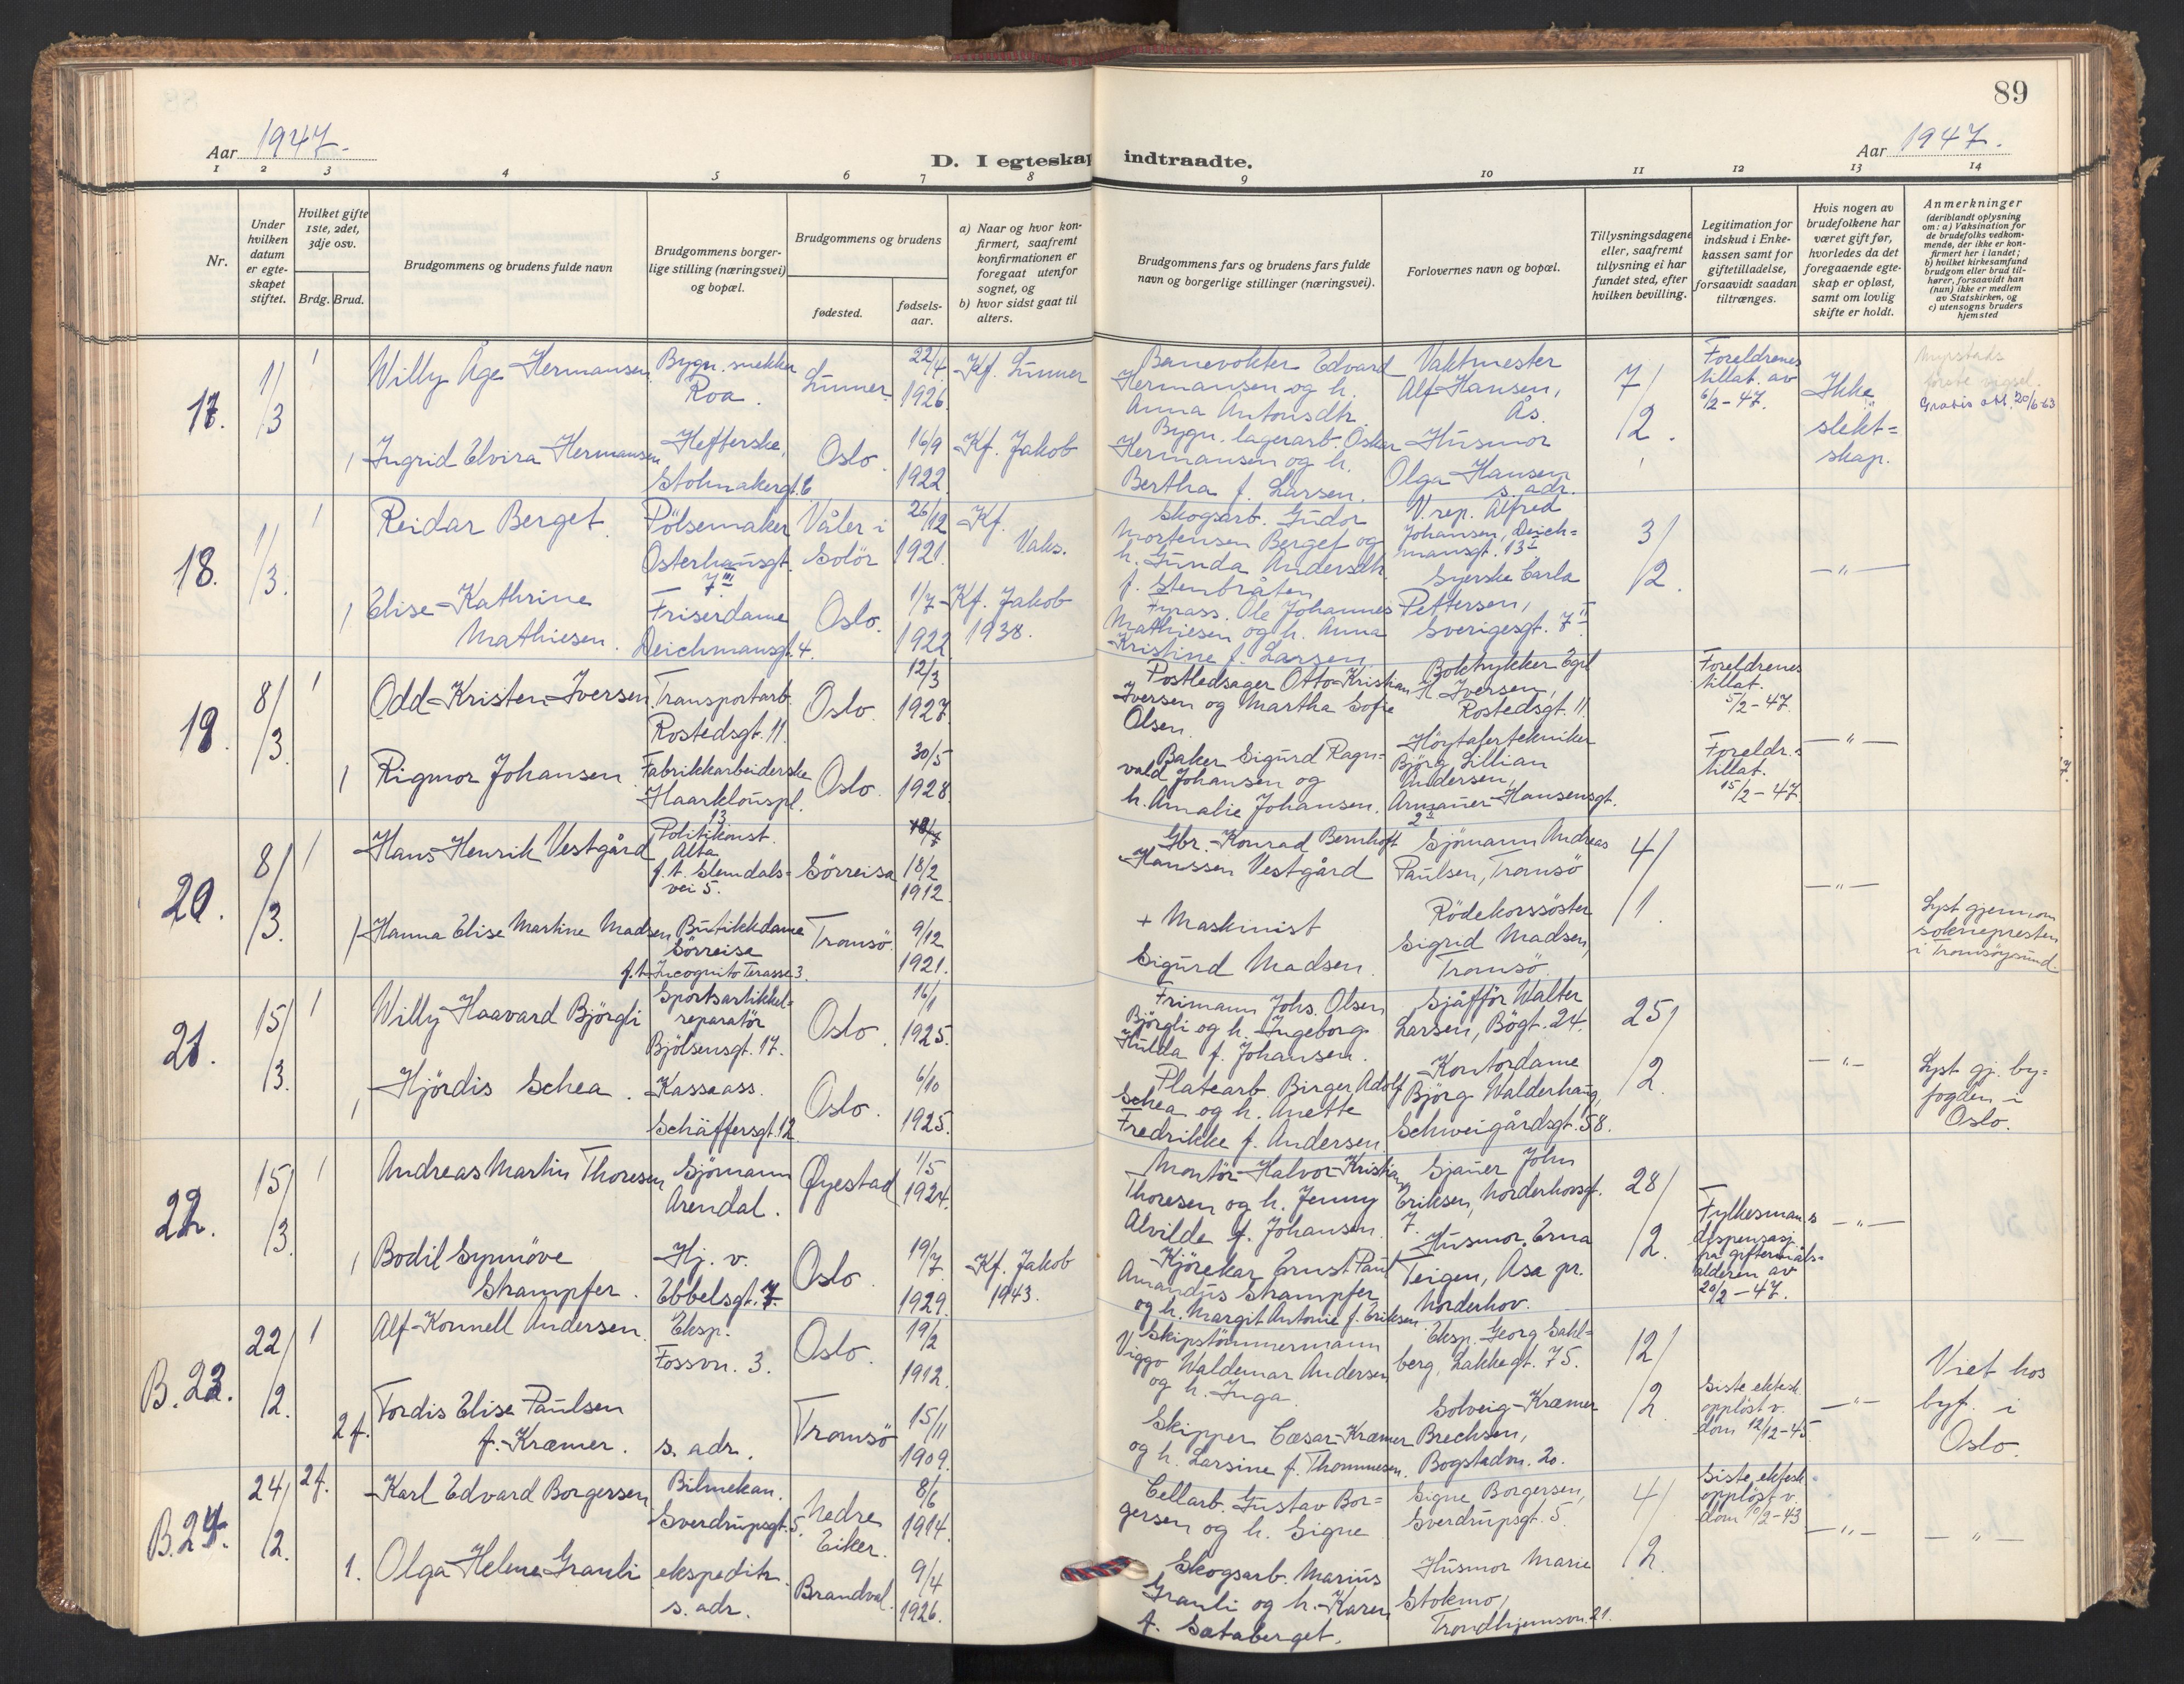 89
Aar 1947.
D. I egteskap indtraadte.
Aar 1947.
1 2 3 4 5 6 7 8 9 10 11 12 13 14
Nr.
Under hvilken datum er egteskapet stiftet.
Hvilket gifte 1ste, 2det, 3dje osv.
Brdg. Brud.
Brudgommens og brudens fulde navn
Brudgommens borgerlige stilling (næringsvei) og bopæl.
Brudgommens og brudens
fødested.
fødselsaar.
a) Naar og hvor konfirmert, saafremt konfirmationen er foregaat utenfor sognet, og
b) hvor sidst gaat til alters.
Brudgommens fars og brudens fars fulde navn og borgerlige stillinger (næringsvei).
Forlovernes navn og bopæl.
Tillysningsdagene eller, saafremt tillysning ei har fundet sted, efter hvilken bevilling.
Legitimation for indskud i Enkekassen samt for giftetilladelse, forsaavidt saadan tiltrænges.
Hvis nogen av brudefolkene har været gift før, hvorledes da det foregaaende egteskap er opløst, samt om lovlig skifte er holdt.
Anmerkninger
(deriblandt oplysning om: a) Vaksination for de brudefolks vedkommende, der ikke er konfirmert her i landet; b) hvilket kirkesamfund brudgom eller brud tilhører, forsaavidt han (hun) ikke er medlem av Statskirken, og c) utensogns bruders hjemsted
17. 1/3 1
Willy Åge Hermansen
Bygn. snekker
Roa.
Lunner
22/4
1926.
Kf. Lunner
Banevokter Edvard
Hermansen og h.
Anna Antonsdtr.
Vaktmester
Alf Hansen,
Ås.
7/2.
Foreldrenes
tillat. av
6/2-47.
Ikke
slekt=
skap.
første vigsel.
Gratis att. 20/6-63
1 Ingrid Elvira Hermansen
Hefterske,
Stolmakergt. 6
Oslo.
16/9
1922.
Kf. Jakob
Bygn. lagerarb. Oskar
Hermansen og h.
Bertha f. Larsen.
Husmor
Olga Hansen
s. adr.
18. 1/3. 1
Reidar Berget.
Pölsemaker
Osterhausgt.
7 III
Våler i
Solör
26/12
1921.
Kf.
Vaks.
Skogsarb. Gudor
Mortensen Berget og
h. Gunda Andersdtr.
f. Stenbråten
V. rep. Alfred
Johansen, Deich=
mansgt. 13
3/2.
— " —
1 Elise Kathrine
Mathiesen.
Friserdame
Deichmansgt. 4.
Oslo.
1/7
1922
Kf. Jakob
1938.
Fyrass. Ole Johannes
Mathiesen og h. Anna
Kristine f. Larsen.
Syerske Carla
Pettersen,
Sverigesgt. 7 II
19. 8/3. 1
Odd Kristen Iversen
Transportarb.
Rostedsgt. 11.
Oslo.
12/3
1927.
Postledsager Otto Kristian
Iversen og Martha Sofie
Olsen.
Boktrykker Egil
H. Iversen,
Rostedsgt. 11.
Foreldrenes
tillat.
5/2-47.
— " —
1 Rigmor Johansen
Fabrikkarbeiderske
Haarklouspl.
13
Oslo.
30/5
1928.
Baker Sigurd Ragn=
vald Johansen og
h. Amalie Johansen.
Höytalertekniker
Björg Lillian
Andersen,
Armauer Hansensgt.
2
Foreldr.s
tillat.
15/2-47.
20. 8/3. 1
Hans Henrik Vestgård
Politikonst.
Alta
f.t. Slemdals=
vei 5.
Sörreisa
18/2
1912.
Gbr. Konrad Bernhoft
Hanssen Vestgård
Sjömann Andreas
Paulsen, Tromsö
4/1.
— " —
1 Hanna Elise Martine Madsen
Butikkdame
Sörreise
f.t. Incognito Terasse 3.
Tromsö.
9/12
1921.
+ Maskinist
Sigurd Madsen.
Rödekorssöster
Sigrid Madsen,
Tromsö.
Lyst gjennom
soknepresten
i Tromsöysund.
21. 15/3. 1
Willy Haavard Björgli
Sportsartikkel=
reparatör
Bjölsensgt. 17.
Oslo.
16/1
1925.
Frimann Johs. Olsen
Björgli og h. Ingeborg
Hulda f. Johansen.
Sjåfför Walter
Larsen, Bögt. 24.
25/2.
— " —
1 Hjördis Schea.
Kasseass.
Schäffersgt. 12.
Oslo.
6/10
1925.
Platearb. Birger Adolf
Schea og h. Anette
Fredrikke f. Andersen.
Kontordame
Björg Walderhaug,
Schweigårdsgt. 58.
Lyst gj. by=
fogden i
Oslo.
22. 15/3. 1
Andreas Martin Thoresen
Sjömann
Arendal.
Öyestad
1/5
1924.
Montör Halvor Kristian
Thoresen og h. Jenny
Alvilde f. Johansen.
Sjauer John
Eriksen, Norderhovsgt.
7.
28/2.
Fylkesmanns
dispensasj.
fra giftermåls=
alderen av
20/2-47.
— " —
1 Bodil Synnöve
Strampfer.
Hj. v.
Ebbelsgt. 7.
Oslo.
19/7
1929.
Kf. Jakob
1943.
Kjörekar Ernst Paul
Amandus Strampfer
og h. Margit Antonie f. Eriksen.
Husmor Erna
Teigen, Åsa pr.
Norderhov.
B. 23. 22/2. 1
Alf Konnell Andersen.
Eksp.
Fossvn. 3.
Oslo.
19/2
1912.
Skipstömmermann
Viggo Waldemar Andersen
og h. Inga.
Eksp. Georg Sahl=
berg, Lakkegt. 75.
12/2.
Siste ektesk.
opplöst v.
dom 12/12-45.
— " —
Viet hos
byf. i
Oslo.
2 f. Tordis Elise Paulsen
f. Kræmer.
s. adr.
Tromsö
15/11
1909.
Skipper Cæsar Kræmer
og h. Larsine f. Thommesen.
Solveig Kræmer
Brechsen,
Bogstadvn. 20.
B. 24. 24/2. 2 f.
Karl Edvard Borgersen
Bilmekan.
Sverdrupsgt. 5.
Nedre
Eiker.
8/6
1914.
Cellarb. Gustav Bor=
gersen og h. Signe
Signe Borgersen,
Sverdrupsgt. 5.
4/2.
Siste ektesk.
opplöst v.
dom 10/2-43
— " —
— " —
1. Olga Helene Granli
ekspeditr.
s. adr.
Brandval.
9/4
1926.
Skogsarb. Marius
Granli og h. Karen
f. Sætaberget.
Husmor Marie
Stokmo,
Trondhjemsvn. 21.